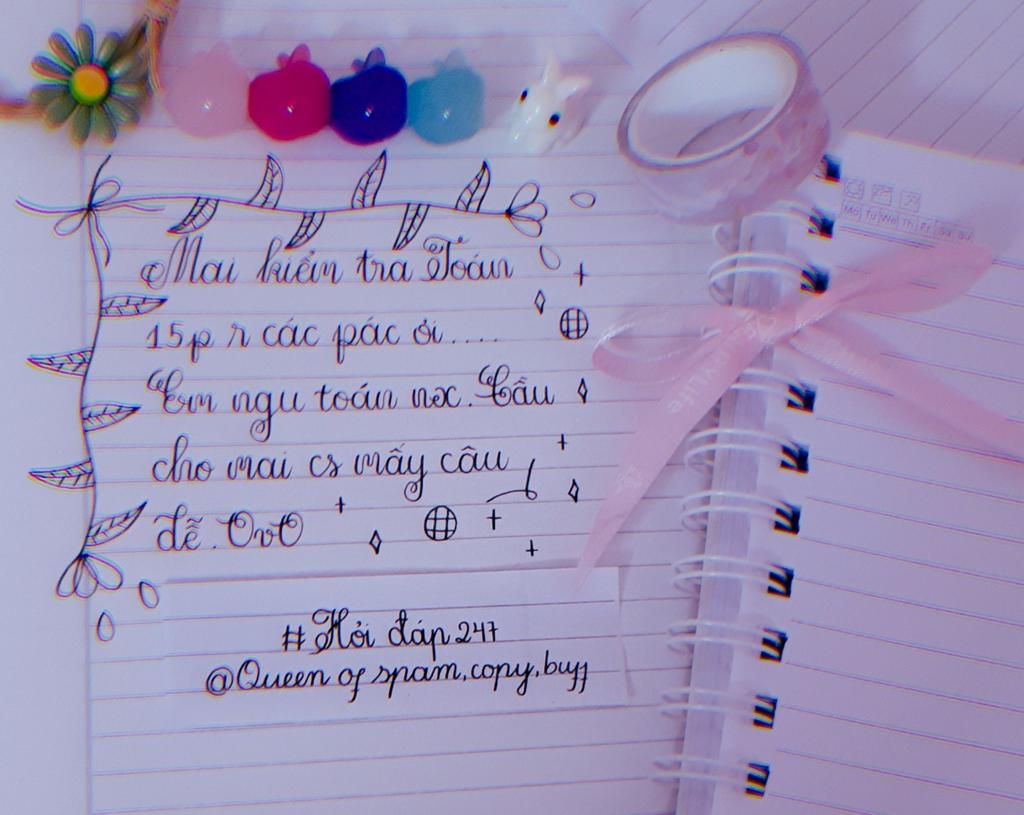 Mai kiểm tra Toán
15p r các pác ơi....
Em ngu toán wx. Cầu
cho mai cs mấy câu
dễ. OvO
#Hỏi đáp 247
@Queen of spam, copy, buff
Mo Tu We Th Fr Sa Su